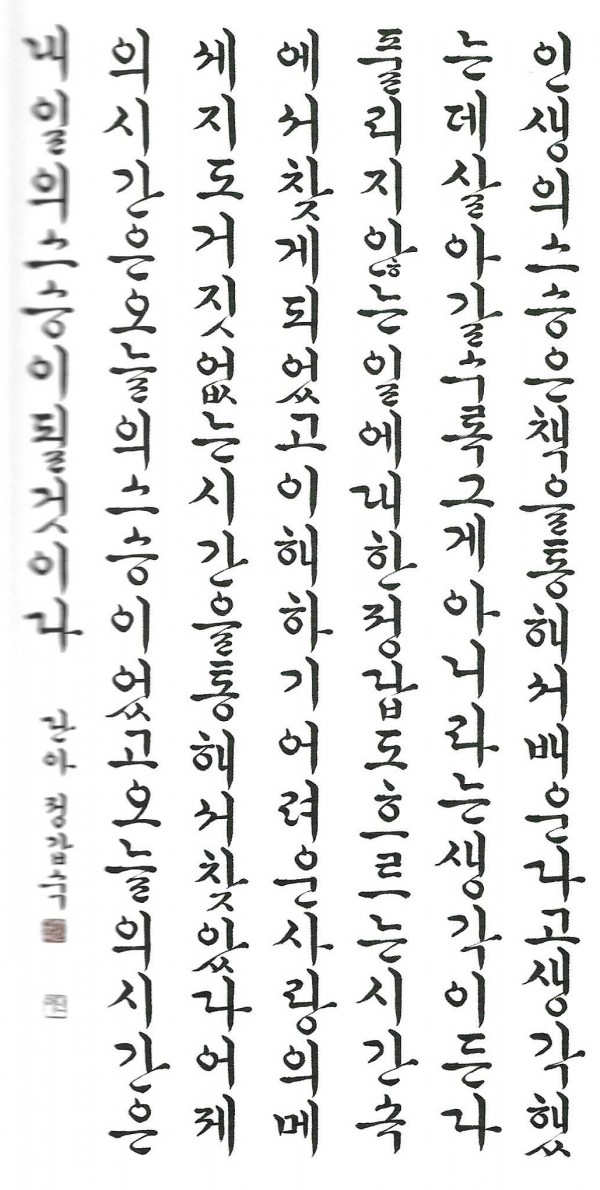 인생의스승은책을통해서배운다고생각했
는데살아갈수록그게아니라는생각이든다
풀리지않는일에대한정답도흐르는시간속
에서찾게되었고이해하기어려운사랑의메
세지도거짓없는시간을통해서찾았다어제
의시간은오늘의스승이었고오늘의시간은
내일의스승이될것이다 정갑숙